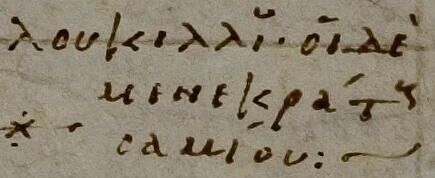 λουκιλλιȣ· οἱ δὲ
μενεκράτȣς
σαμίου: